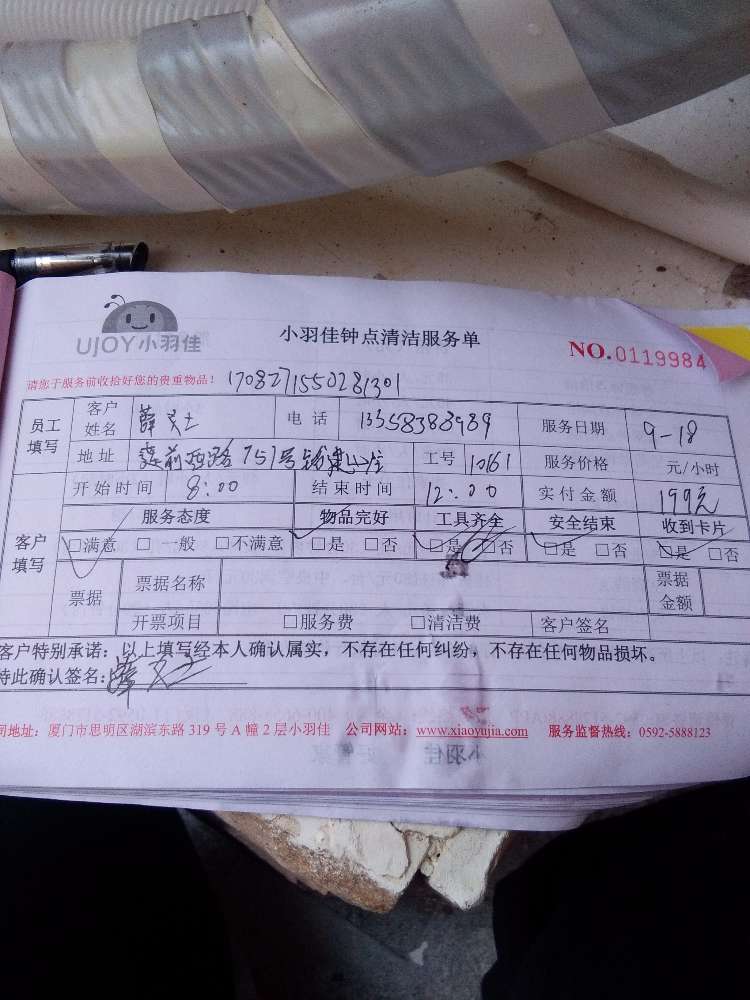 UJOY小羽佳
小羽佳钟点清洁服务单
NO.0119984
请您于服务前收拾好您的贵重物品！ 1708271550281301
员工填写 客户姓名 薛女士 电话 13358388989 服务日期 9-18
地址 前西路757号 工号 10161 服务价格 元/小时
开始时间 8:00 结束时间 12:00 实付金额 199元
客户填写 服务态度 物品完好 工具齐全 安全结束 收到卡片
□满意 □一般 □不满意 □是 □否 □是 □否 □是 □否 □是 □否
票据 票据名称 票据金额
开票项目 □服务费 □清洁费 客户签名
客户特别承诺：以上填写经本人确认属实，不存在任何纠纷，不存在任何物品损坏。
特此确认签名: 薛女士
司地址：厦门市思明区湖滨东路 319 号 A 幢 2 层小羽佳 公司网站：www.xiaoyujia.com 服务监督热线：0592-5888123